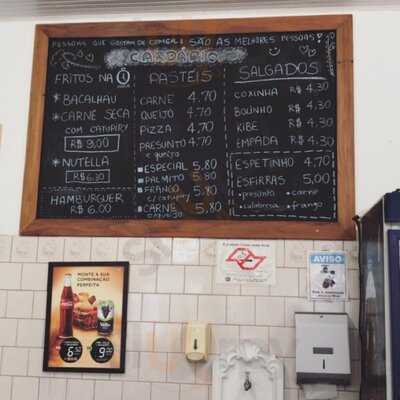 PESSOAS QUE GOSTAM DE COMER, SÃO AS MELHORES PESSOAS!
CARDÁPIO
FRITOS NA
BACALHAU
CARNE SECA
COM CATUPIRY
R$ 9,00
NUTELLA
R$ 6,30
HAMBURGUER
R$ 6,00
PASTÉIS
CARNE 4,70
QUEIJO 4,70
PIZZA 4,70
PRESUNTO 4,70
e queijo
ESPECIAL 5,80
PALMITO 5,80
FRANGO 5,80
C/ CATUPIRY
CARNE 5,80
C/ QUEIJO
SALGADOS
COXINHA R$ 4,30
BOLINHO R$ 4,30
KIBE R$ 4,30
EMPADA R$ 4,30
ESPETINHO 4,70
ESFIRRAS 5,00
•presunto •carne
•calabresa •frango
MONTE A SUA
COMBINAÇÃO
PERFEITA
6
9
AVISO